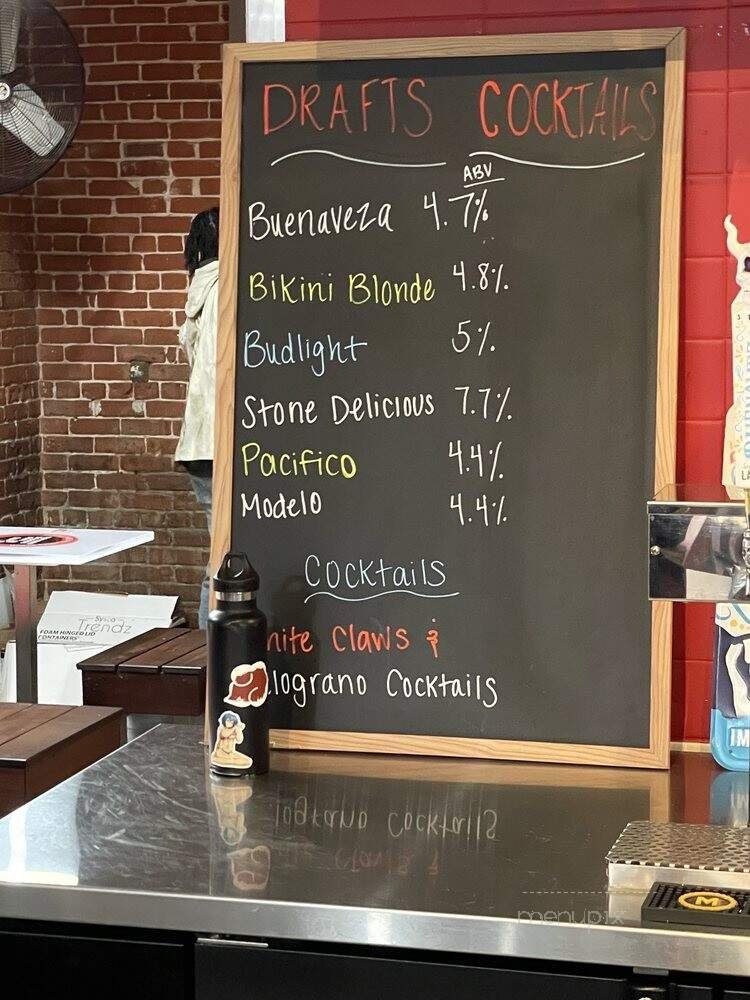 DRAFTS COCKTAILS
ABV
Buenaveza 4.7%
Bikini Blonde 4.8%
Budlight 5%
Stone Delicious 7.7%
Pacifico 4.4%
Modelo 4.4%
Cocktails
hite Claws &
lograno Cocktails
Sysco
Trendz
FOAM HINGED LID
CONTAINERS
IM
M
menupix